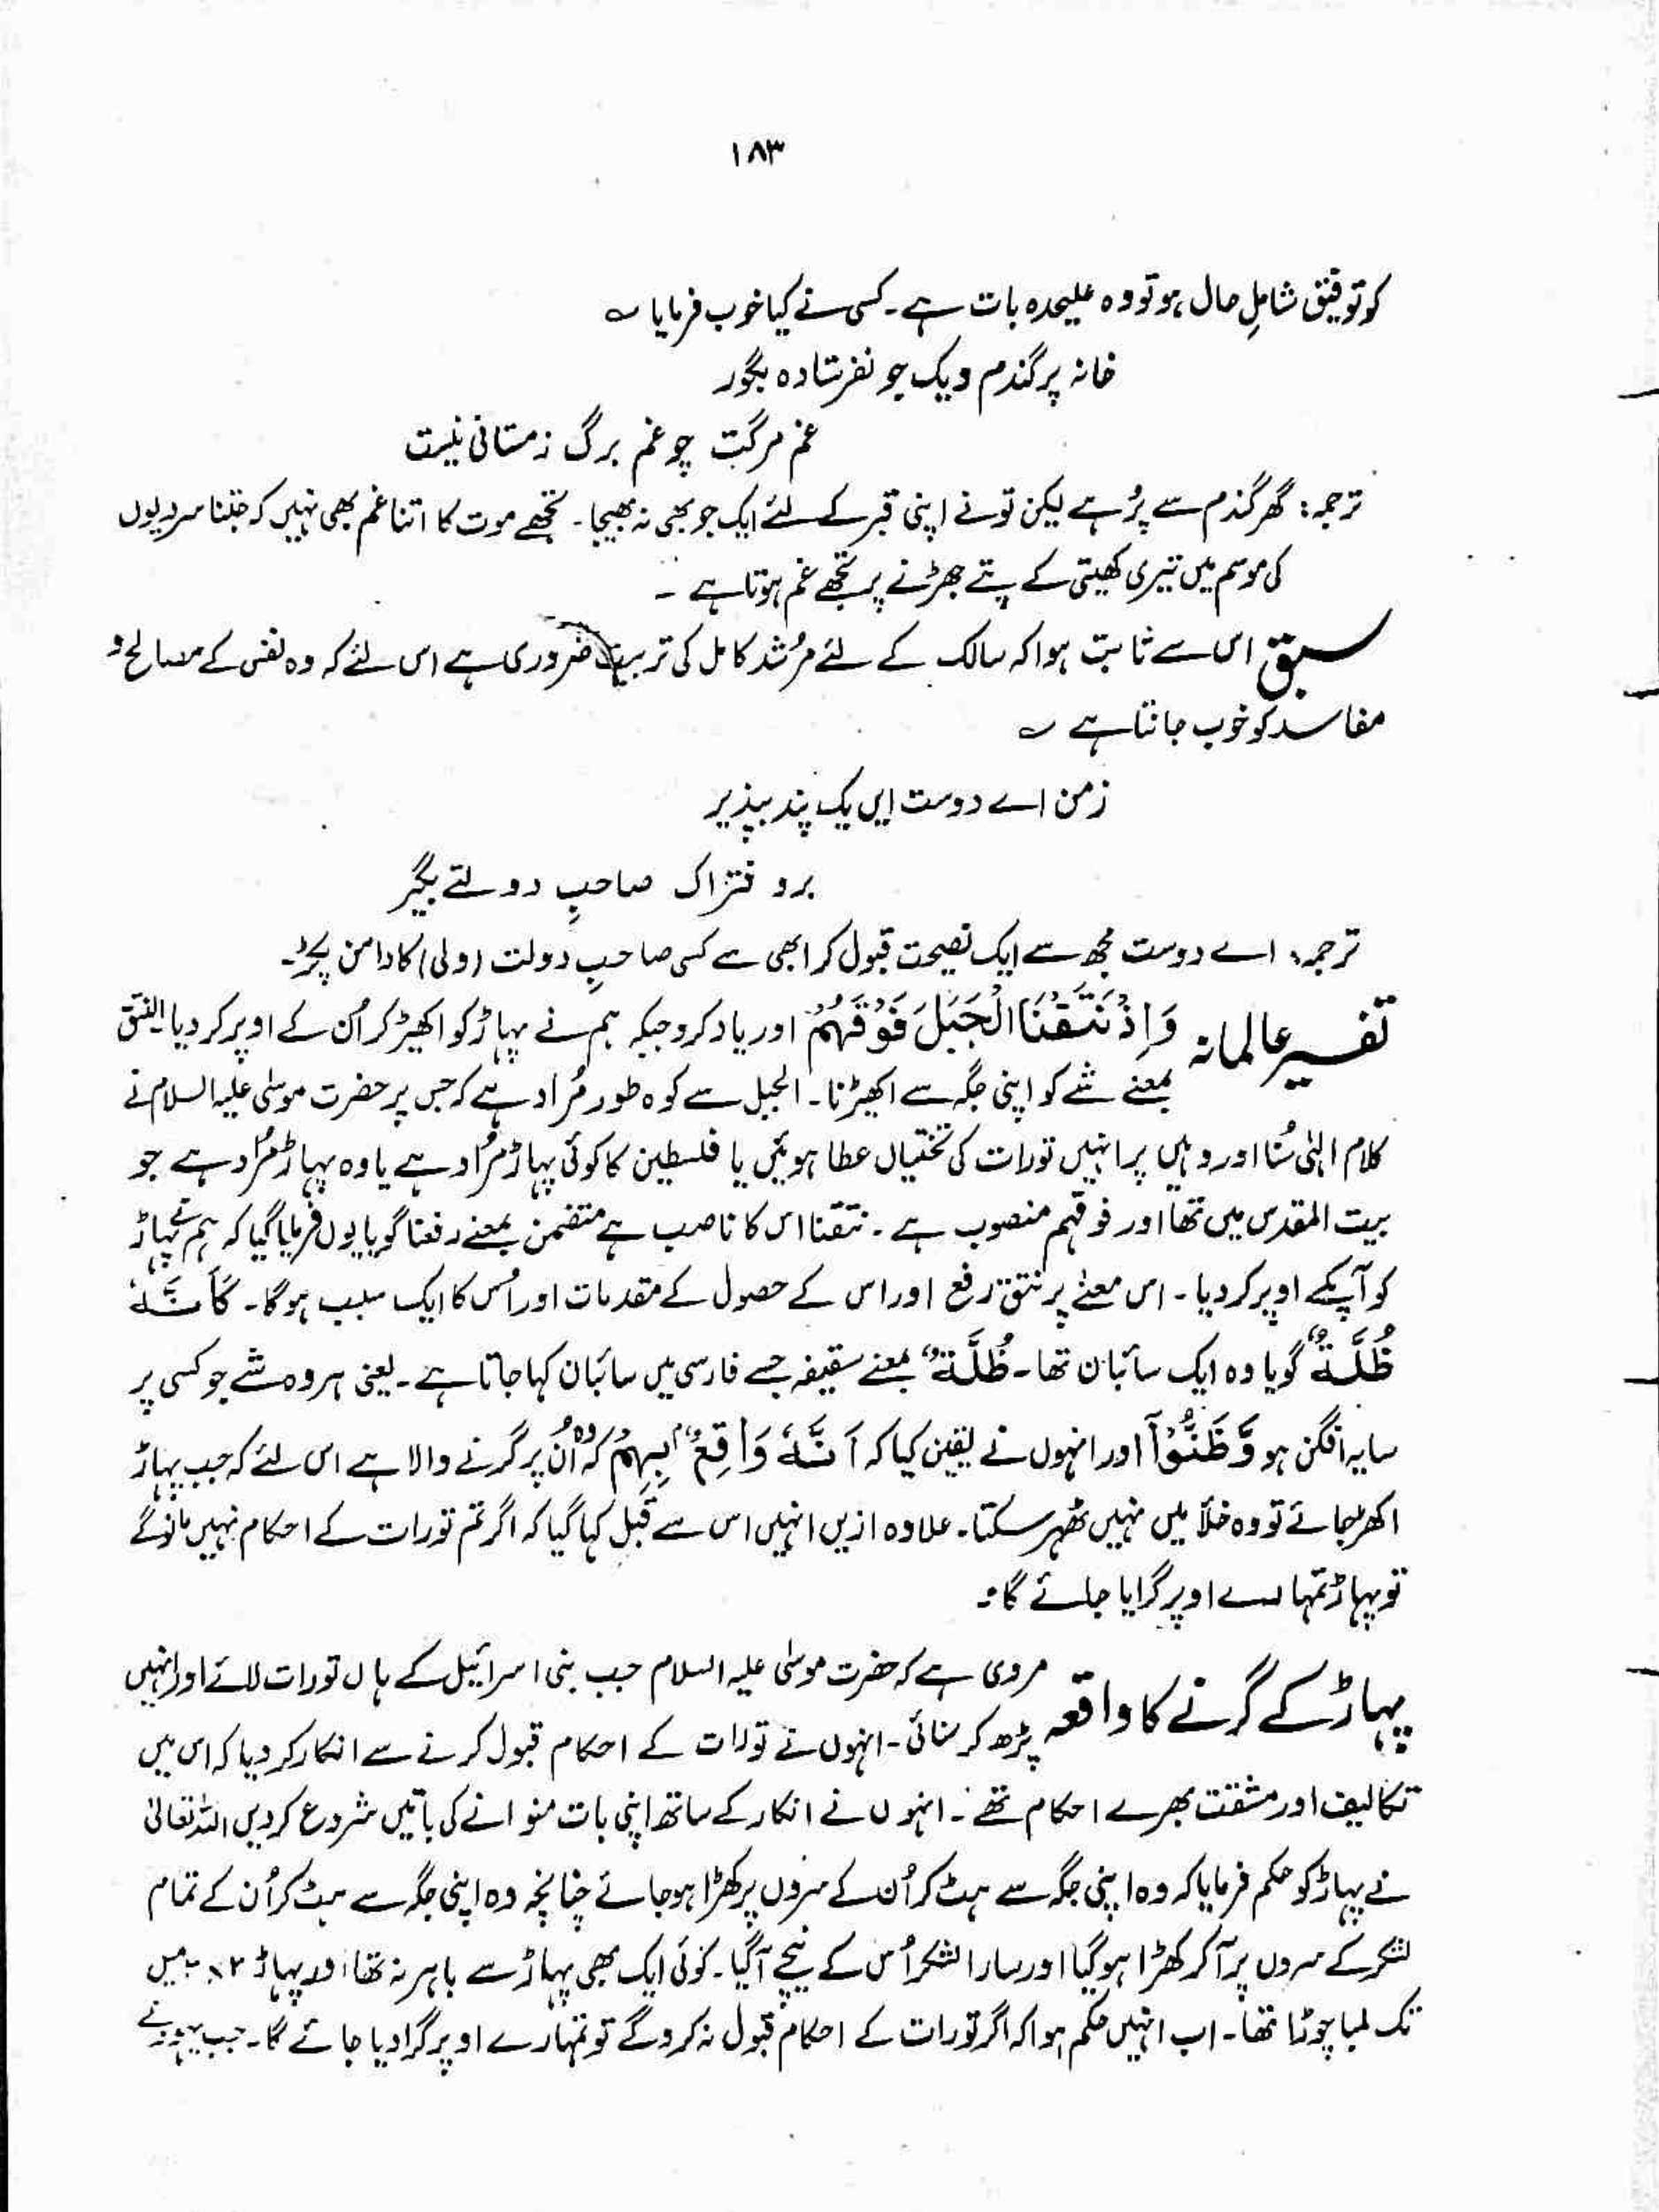 ۱۸۳
کو توفیق شاملِ حال ہو تو وہ علیحدہ بات ہے۔ کسی نے کیا خوب فرمایا ؎
خانہ پر گندم و یک جو نفرستادہ بگور
غم مرگت چو غم برگ زمستانی نیست
ترجمہ: گھر گندم سے پُر ہے لیکن تو نے اپنی قبر کے لئے ایک جو بھی نہ بھیجا۔ تجھے موت کا اتنا غم بھی نہیں کہ جتنا سردیوں
کی موسم میں تیری کھیتی کے پتے جھڑنے پر تجھے غم ہوتا ہے ۔
سبق اس سے ثابت ہوا کہ سالک کے لئے مُرشد کامل کی تربیت ضروری ہے اس لئے کہ وہ نفس کے مصالح و
مفاسد کو خوب جانتا ہے ؎
زمن اے دوست ایں یک پند بپذیر
برو فتراک صاحبِ دولتے بگیر
ترجمہ: اے دوست مجھ سے ایک نصیحت قبول کر ابھی سے کسی صاحبِ دولت (ولی) کا دامن پکڑ۔
تفسیر عالمانہ وَاِذْ نَتَقْنَا الْجَبَلَ فَوْقَهُمْ اور یاد کرو جبکہ ہم نے پہاڑ کو اکھیڑ کر اُن کے اوپر کر دیا النتق
بمعنے شے کو اپنی جگہ سے اکھیڑنا۔ الجبل سے کوہ طور مُراد ہے کہ جس پر حضرت موسیٰ علیہ السلام نے
کلام الہٰی سُنا اور وہیں پر انہیں تورات کی تختیاں عطا ہوئیں یا فلسطین کا کوئی پہاڑ مُراد ہے یا وہ پہاڑ مُراد ہے جو
بیت المقدس میں تھا اور فوقہم منصوب ہے ۔ نتقنا اس کا ناصب ہے متضمن بمعنے رفعنا گویا یوں فرمایا گیا کہ ہم نے پہاڑ
کو آپکے اوپر کر دیا۔ اس معنےٰ پر نتق رفع اور اس کے حصول کے مقدمات اور اُس کا ایک سبب ہوگا۔ کَاَنَّهٗ
ظُلَّةٌ گویا وہ ایک سائبان تھا۔ ظُلَّةٌ بمعنے سقیفہ جسے فارسی میں سائبان کہا جاتا ہے۔ یعنی ہر وہ شے جو کسی پر
سایہ افگن ہو وَّظَنُّوْٓا اور انہوں نے یقین کیا کہ اَنَّهٗ وَاقِعٌۢ بِهِمْ کہ وہ اُن پر گرنے والا ہے اس لئے کہ جب پہاڑ
اکھڑ جائے تو وہ خلأ میں نہیں ٹھہر سکتا۔ علاوہ ازیں انہیں اس سے قبل کہا گیا کہ اگر تم تورات کے احکام نہیں مانو گے
تو پہاڑ تمہارے اوپر گرایا جائے گا۔
پہاڑ کے گرنے کا واقعہ مروی ہے کہ حضرت موسیٰ علیہ السلام جب بنی اسرائیل کے ہاں تورات لائے اور انہیں
پڑھ کر سنائی۔ انہوں نے تورات کے احکام قبول کرنے سے انکار کر دیا کہ اس میں
تکالیف اور مشقت بھرے احکام تھے ۔ انہوں نے انکار کے ساتھ اپنی بات منوانے کی باتیں شروع کر دیں اللہ تعالیٰ
نے پہاڑ کو حکم فرمایا کہ وہ اپنی جگہ سے ہٹ کر اُن کے سروں پر کھڑا ہو جائے چنانچہ وہ اپنی جگہ سے ہٹ کر اُن کے تمام
لشکر کے سروں پر آ کر کھڑا ہو گیا اور سارا لشکر اُس کے نیچے آگیا۔ کوئی ایک بھی پہاڑ سے باہر نہ تھا اور پہاڑ میں
تک لمبا چوڑا تھا۔ اب انہیں حکم ہوا کہ اگر تورات کے احکام قبول نہ کرو گے تو تمہارے اوپر گرا دیا جائے گا۔ جب